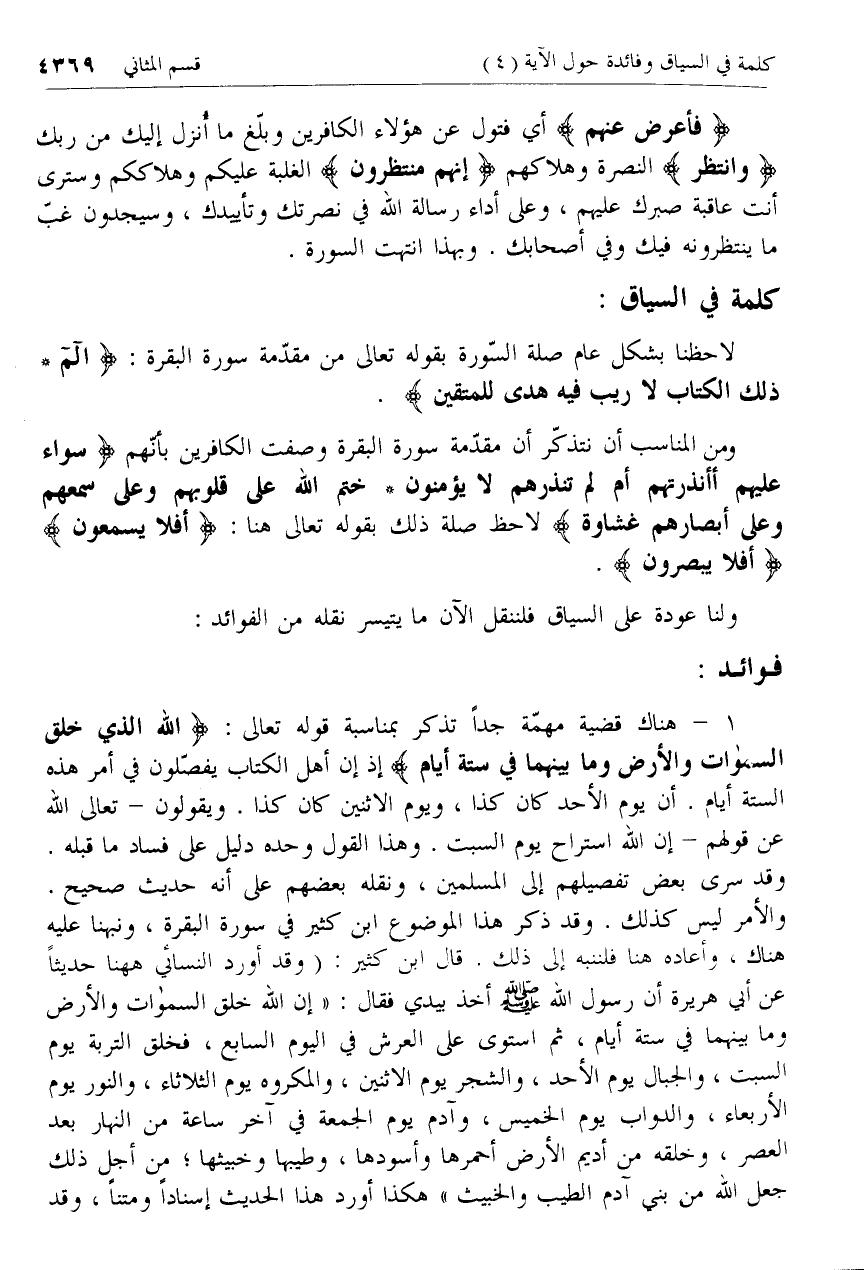 كلمة في السياق وفائدة حول الآية ( ٤ ) قسم المثاني ٤٣٦٩
﴿ فأعرض عنهم ﴾ أي فتول عن هؤلاء الكافرين وبلّغ ما أُنزل إليك من ربك
﴿ وانتظر ﴾ النصرة وهلاكهم ﴿ إنهم منتظرون ﴾ الغلبة عليكم وهلاككم وسترى
أنت عاقبة صبرك عليهم ، وعلى أداء رسالة الله في نصرتك وتأييدك ، وسيجدون غبّ
ما ينتظرونه فيك وفي أصحابك . وبهذا انتهت السورة .
كلمة في السياق :
لاحظنا بشكل عام صلة السّورة بقوله تعالى من مقدّمة سورة البقرة : ﴿ الٓمٓ *
ذلك الكتاب لا ريب فيه هدى للمتقين ﴾ .
ومن المناسب أن نتذكّر أن مقدّمة سورة البقرة وصفت الكافرين بأنّهم ﴿ سواء
عليهم أأنذرتهم أم لم تنذرهم لا يؤمنون * ختم الله على قلوبهم وعلى سمعهم
وعلى أبصارهم غشاوة ﴾ لاحظ صلة ذلك بقوله تعالى هنا : ﴿ أفلا يسمعون ﴾
﴿ أفلا يبصرون ﴾ .
ولنا عودة على السياق فلننقل الآن ما يتيسر نقله من الفوائد :
فـوائـد :
١ – هناك قضية مهمّة جداً تذكر بمناسبة قوله تعالى : ﴿ الله الذي خلق
السمٰوات والأرض وما بينهما في ستة أيام ﴾ إذ إن أهل الكتاب يفصّلون في أمر هذه
الستة أيام . أن يوم الأحد كان كذا ، ويوم الاثنين كان كذا . ويقولون – تعالى الله
عن قولهم – إن الله استراح يوم السبت . وهذا القول وحده دليل على فساد ما قبله .
وقد سرى بعض تفصيلهم إلى المسلمين ، ونقله بعضهم على أنه حديث صحيح .
والأمر ليس كذلك . وقد ذكر هذا الموضوع ابن كثير في سورة البقرة ، ونبهنا عليه
هناك ، وأعاده هنا فلننبه إلى ذلك . قال ابن كثير : ( وقد أورد النسائي ههنا حديثاً
عن أبي هريرة أن رسول الله ﷺ أخذ بيدي فقال : « إن الله خلق السمٰوات والأرض
وما بينهما في ستة أيام ، ثم استوى على العرش في اليوم السابع ، فخلق التربة يوم
السبت ، والجبال يوم الأحد ، والشجر يوم الاثنين ، والمكروه يوم الثلاثاء ، والنور يوم
الأربعاء ، والدواب يوم الخميس ، وآدم يوم الجمعة في آخر ساعة من النهار بعد
العصر ، وخلقه من أديم الأرض أحمرها وأسودها ، وطيبها وخبيثها ؛ من أجل ذلك
جعل الله من بني آدم الطيب والخبيث » هكذا أورد هذا الحديث إسناداً ومتناً ، وقد